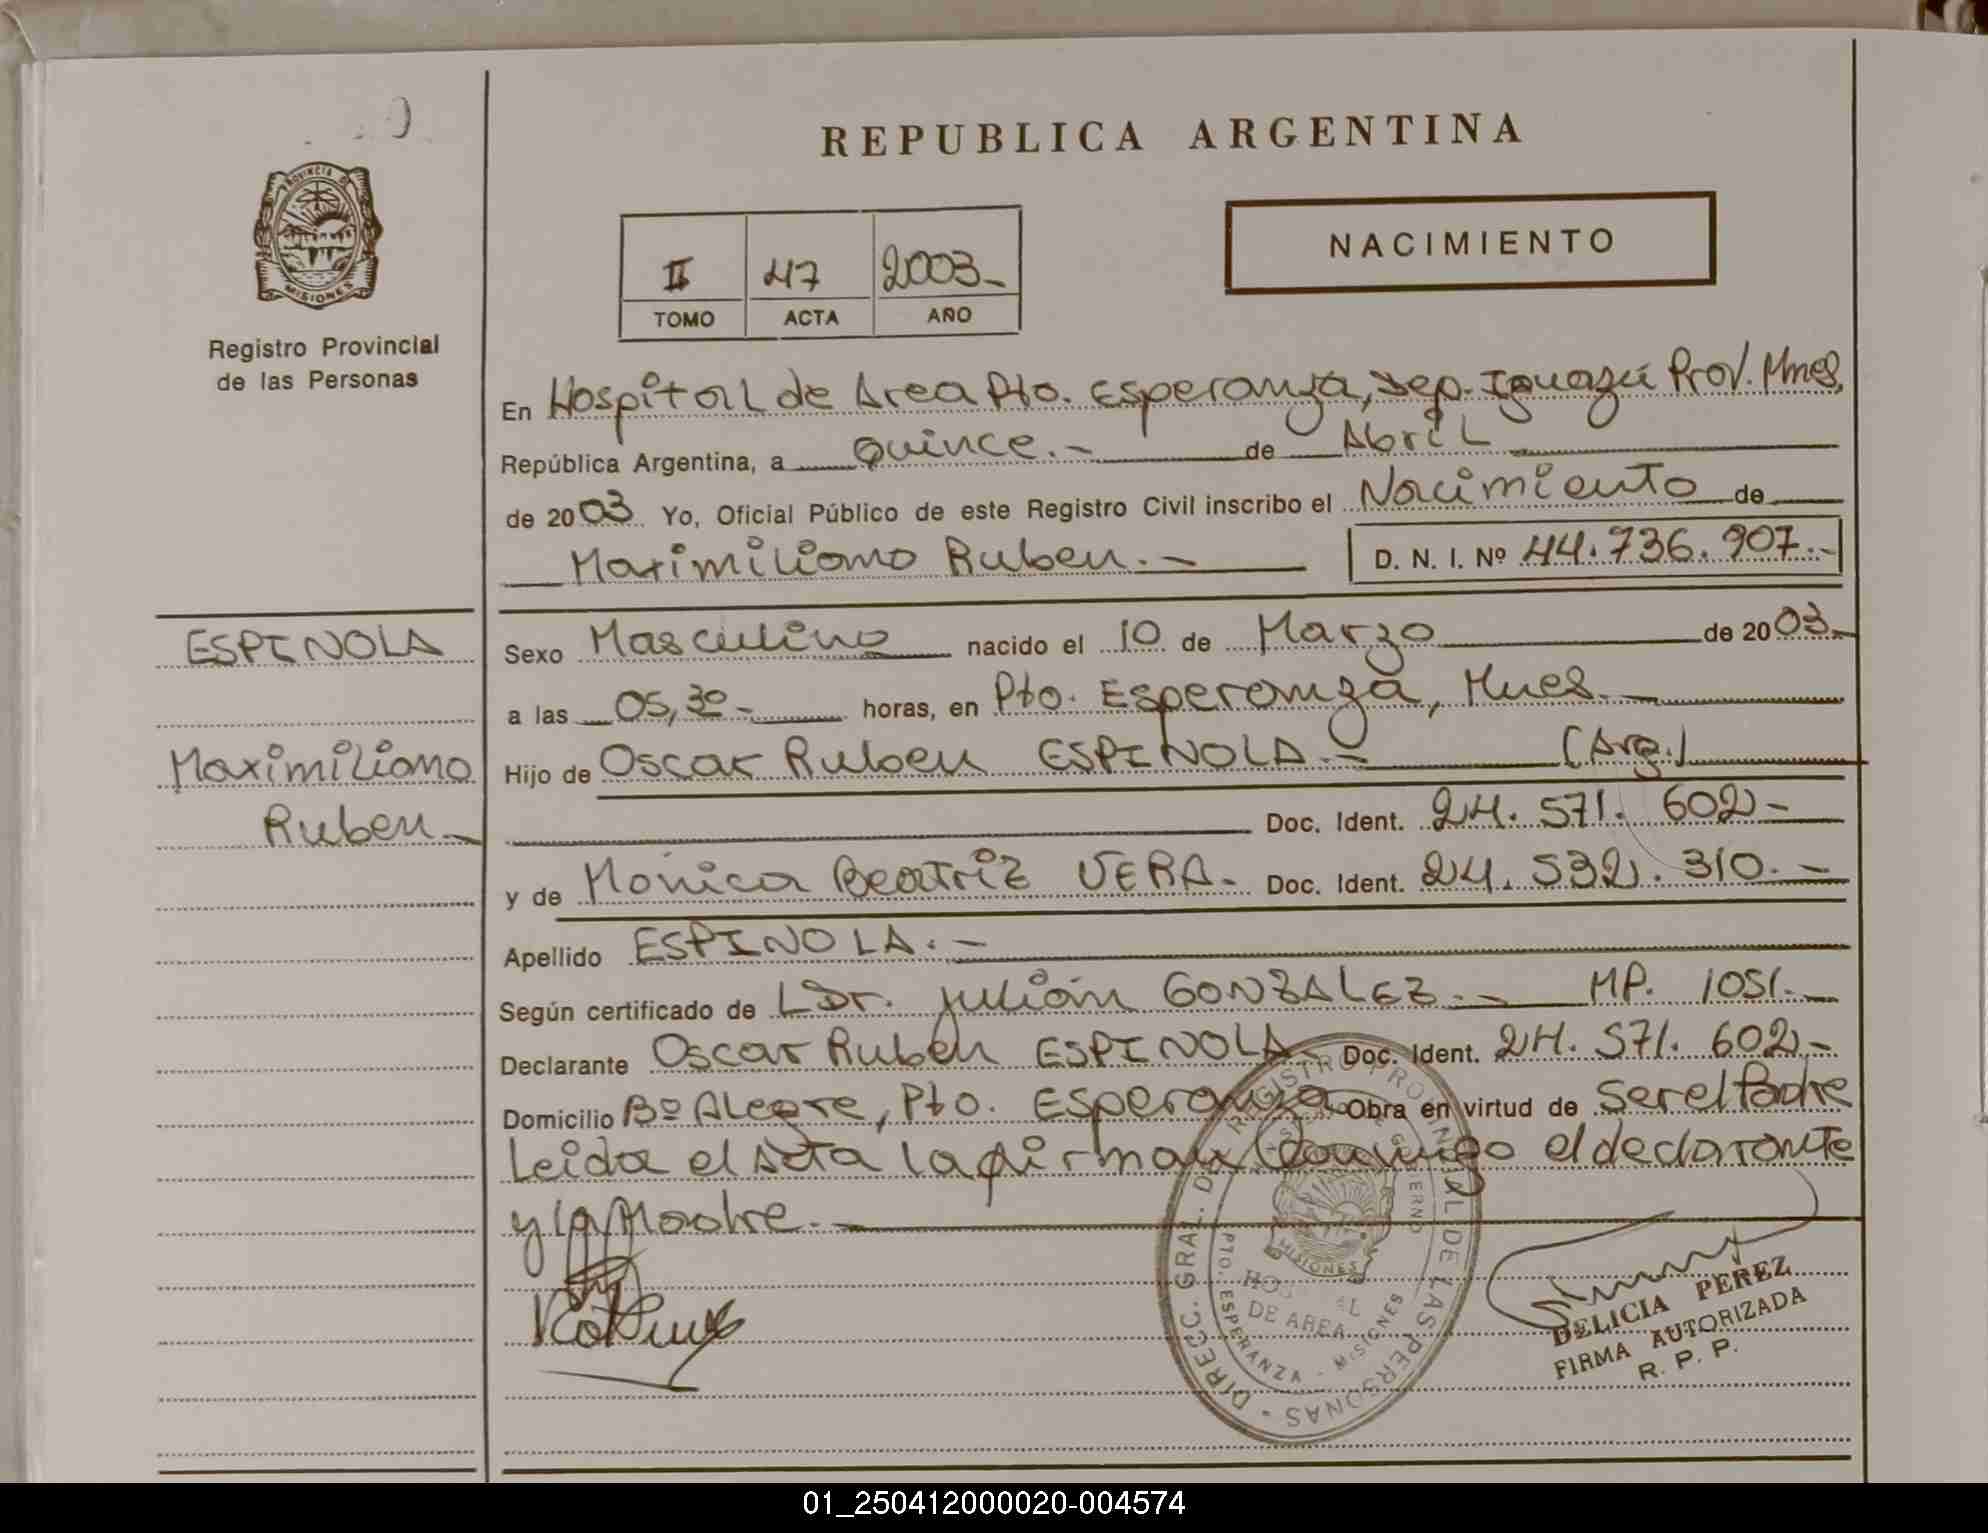 REPUBLICA ARGENTINA
PROVINCIA DE
MISIONES
Registro Provincial
de las Personas
II 47 2003-
TOMO ACTA AÑO
NACIMIENTO
En Hospital de Area Pto. Esperanza, Dep. Iguazú Prov. Mnes.
República Argentina, a Quince.- de Abril
de 2003 Yo, Oficial Público de este Registro Civil inscribo el Nacimiento de
Maximiliano Ruben.- D. N. I. Nº 44.736.907.-
ESPINOLA
Maximiliano
Ruben.-
Sexo Masculino nacido el 10 de Marzo de 2003.-
a las 05,30- horas, en Pto. Esperanza, Mnes.-
Hijo de Oscar Ruben ESPINOLA.- (Arg.)
Doc. Ident. 24. 571. 602-
y de Mónica Beatriz VERA.- Doc. Ident. 24. 532. 310.-
Apellido ESPINOLA.-
Según certificado de L Dr. Julián GONZALEZ.- MP. 1051.-
Declarante Oscar Ruben ESPINOLA- Doc. Ident. 24. 571. 602.-
Domicilio Bº Alegre, Pto. Esperanza Obra en virtud de ser el Padre
Leida el Acta la firman Conmigo el declarante
y la Madre.-
DIRECC. GRAL. DEL REGISTRO PROVINCIAL DE LAS PERSONAS
MISIONES
HOSPITAL
DE AREA
PTO. ESPERANZA - MISIONES
DELICIA PEREZ
FIRMA AUTORIZADA
R. P. P.
01_250412000020-004574